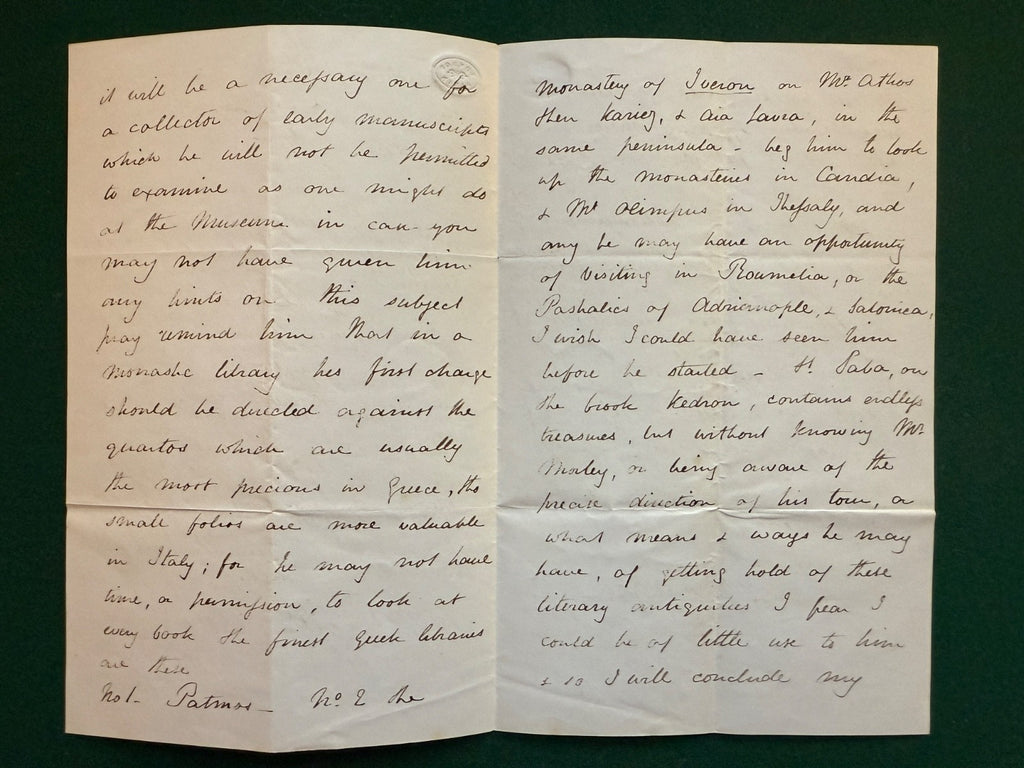 it will be a necessary one for
a collector of early manuscripts
which he will not be permitted
to examine as one might do
at the Museum. in case you
may not have given him
any hints on this subject
pray remind him that in a
monastic library his first charge
should be directed against the
quartos which are usually
the most precious in Greece, the
small folios are more valuable
in Italy; for he may not have
time, or permission, to look at
every book the finest Greek libraries
are these
No1- Patmos - No. 2 the
monastery of Iveron on Mt. Athos
then Kariez, & Aia Laura, in the
same peninsula - beg him to look
up the monasteries in Candia,
& Mt Olimpus in Thessaly, and
any he may have an opportunity
of visiting in Roumelia, or the
Pashalics of Adrianople, & Salonica,
I wish I could have seen him
before he started - St. Saba, on
the brook Kedron, contains endless
treasures, but without knowing Mr.
Morley, or being aware of the
precise direction of his tour, or
what means & ways he may
have, of getting hold of these
literary antiquities I fear I
could be of little use to him
& so I will conclude my